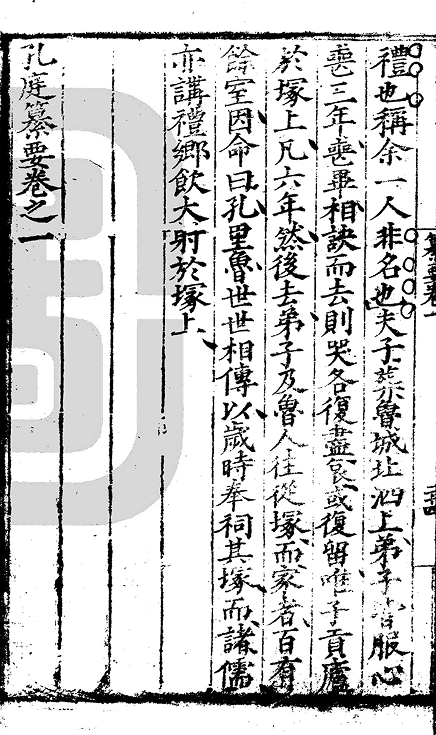 禮也稱余一人非名也夫子葬魯城北泗上弟子皆服心
喪三年喪畢相訣而去則哭各復盡哀或復留唯子貢廬
於塚上凡六年然後去弟子及魯人往從塚而家者百有
餘室因命曰孔里魯世世相傳以歲時奉祠其塚而諸儒
亦講禮鄉飲大射於塚上
孔庭纂要卷之一